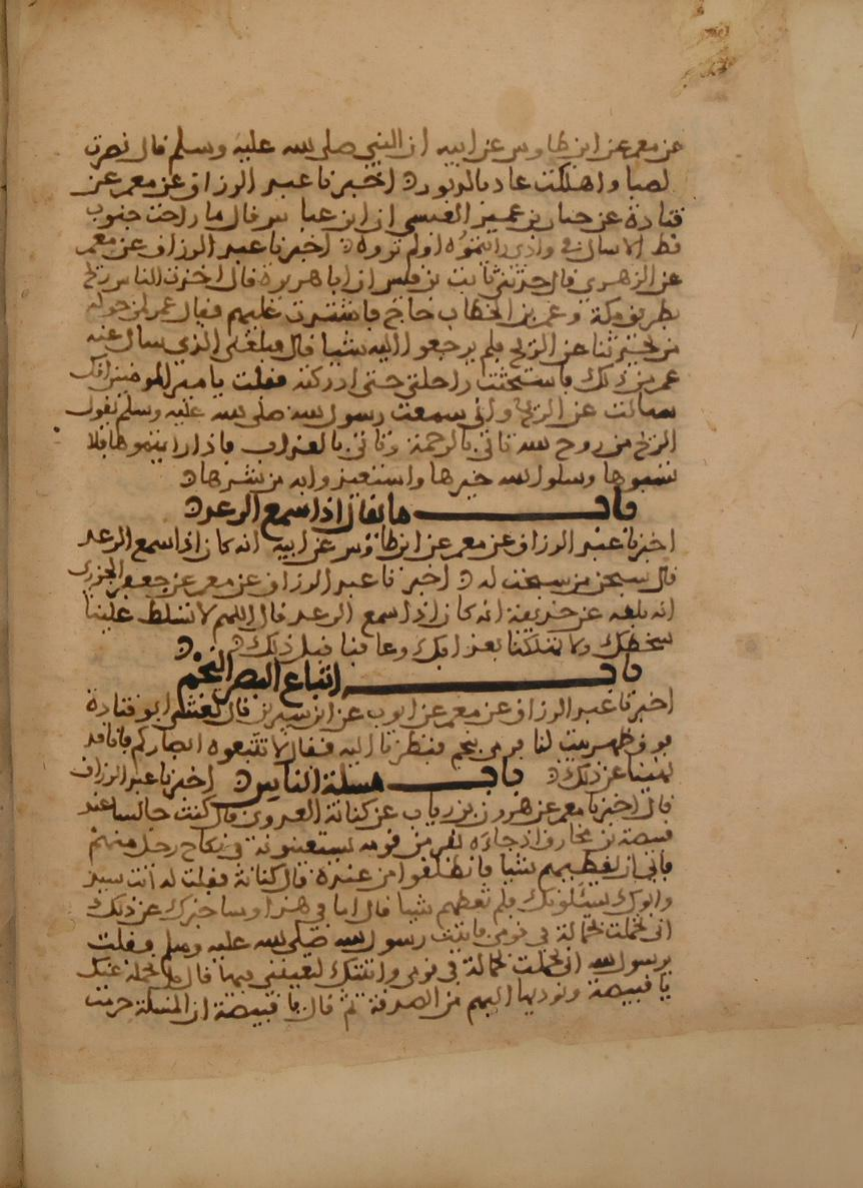 عن معمر عن ابن طاوس عن ابيه ان النبي صلى الله عليه وسلم قال نصرت
لصبا واهلكت عاد بالدبور اخبرنا عبد الرزاق عن معمر عن
قتادة عن حيان بن عمير العبسي ان ابن عباس قال ما راحت جنوب
قط الا سال في وادي رايتموه اولم تروه اخبرنا عبد الرزاق عن معمر
عن الزهري قال حدثني ثابت بن قيس ان ابا هريرة قال اخذت الناس ريح
بطريق مكة وعمر بن الخطاب حاج فاشتدت عليهم فقال عمر لمن حوله
من يحدثنا عن الريح فلم يرجعوا اليه شيا قال فبلغني الذي سال عنه
عمر من ذلك فاستحثثت راحلتي حتى ادركته فقلت يا امير المومنين انك
سالت عن الريح واني سمعت رسول الله صلى الله عليه وسلم يقول
الريح من روح الله تاتي بالرحمة وتاتي بالعذاب فاذا رايتموها فلا
تسبوها وسلوا الله خيرها واستعيذوا به من شرها
باب ما يقال اذا سمع الرعد
اخبرنا عبد الرزاق عن معمر عن ابن طاؤس عن ابيه انه كان اذا سمع الرعد
قال سبحن من سبحت له اخبرنا عبد الرزاق عن معمر عن جعفر الجزري
انه بلغه عن حذيفة انه كان اذا سمع الرعد قال اللهم لا تسلط علينا
سخطك ولا تهلكنا بعذابك وعافنا قبل ذلك
باب اتباع البصر النجم
اخبرنا عبد الرزاق عن معمر عن ايوب عن ابن سيرين قال تعشى ابو قتادة
فوق ظهر بيت لنا فرمي بنجم فنظرنا اليه فقال لا تتبعوه ابصاركم فانا قد
نهينا عن ذلك باب مسلة الناس اخبرنا عبد الرزاق
قال اخبرنا معمر عن هرون بن رياب عن كنانة العدوي قال كنت جالسا عند
قبيصة بن مخارق اذ جاءه نفر من قومه يستعينونه في نكاح رجل منهم
فابى ان يعطيهم شيا فانطلقوا من عنده قال كنانة فقلت له انت سيد
واتوك يسئلونك فلم تعطهم شيا قال اما في هذا وساخبرك عن ذلك
اني تحملت بحمالة في قومي فاتيت رسول الله صلى الله عليه وسلم فقلت
يرسول الله اني تحملت بحمالة في قومي واتيتك لتعينني فيها قال بل نحملها عنك
يا قبيصة ونوديها اليهم من الصدقة ثم قال يا قبيصة ان المسلة حرمت